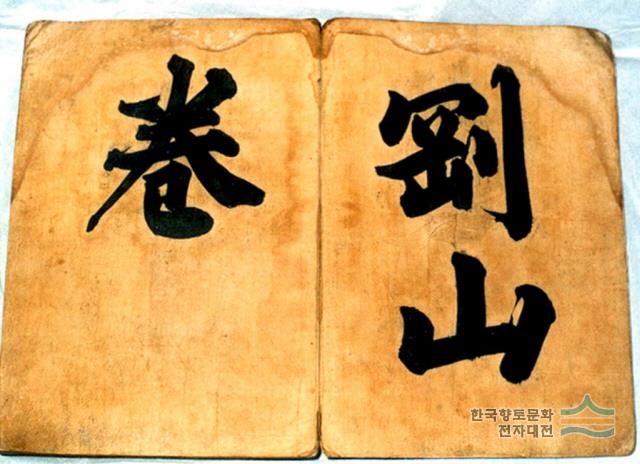 剛山
卷
한국향토문화
전자대전